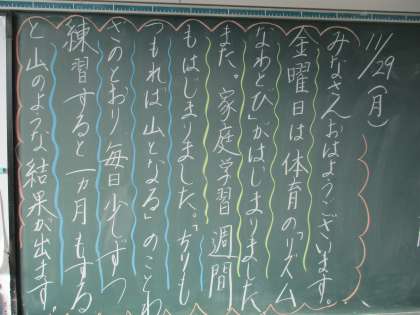 11/29(月)
みなさんおはようございます。
金曜日は体育の「リズム
なわとび」がはじまりました。
また。家庭学習週間
もはじまりました。「ちりも
つもれば山となる」のことわ
ざのとおり毎日少しずつ
練習すると一ヵ月もする
と山のような結果が出ます。